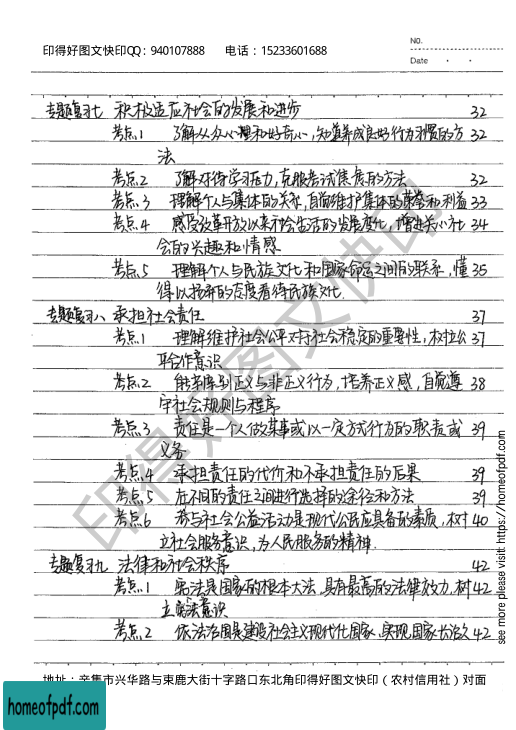 印得好图文快印QQ：940107888 电话：15233601688
NO.
Date
专题复习七 积极适应社会的发展和进步 32
考点1 了解从众心理和好奇心，知道养成良好行为习惯的方 32
法
考点2 了解对待学习压力，克服考试焦虑的方法 32
考点3 理解个人与集体的关系，自觉维护集体的荣誉和利益 33
考点4 感受改革开放以来社会生活的发展变化，增进关心社 34
会的兴趣和情感
考点5 理解个人与民族文化和国家命运之间的联系，懂 35
得以扬弃的态度看待民族文化.
专题复习八 承担社会责任 37
考点1 理解维护社会公平对于社会稳定的重要性，树立公 37
联合作意识
考点2 能够辨别正义与非正义行为，培养正义感，自觉遵 38
守社会规则与程序
考点3 责任是一个人做某事或以一定方式行为的职责或 39
义务
考点4 承担责任的代价和不承担责任的后果 39
考点5 在不同的责任之间进行选择的途径和方法 39
考点6 参与社会公益活动是现代公民应具备的素质，树 40
立社会服务意识，为人民服务的精神.
专题复习九 法律和社会秩序 42
考点1 宪法是国家的根本大法，具有最高的法律效力，树 42
立宪法意识
考点2 依法治国是建设社会主义现代化国家，实现国家长治久 42
地址：辛集市兴华路与束鹿大街十字路口东北角印得好图文快印（农村信用社）对面
印得好图文快印
see more please visit: https://homeofpdf.com
homeofpdf.com